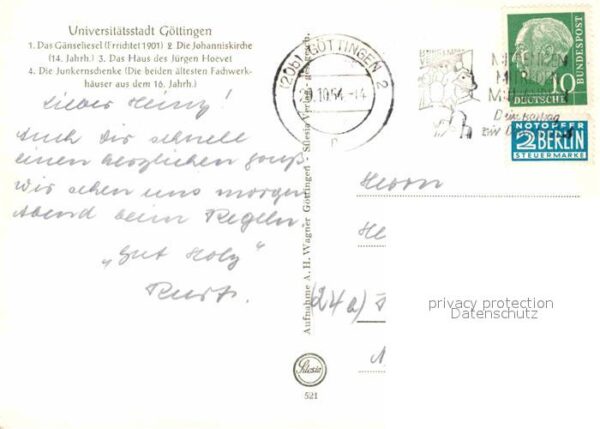 Universitätsstadt Göttingen
1. Das Gänseliesel (Errichtet 1901) 2. Die Johanniskirche
(14. Jahrh.) 3. Das Haus des Jürgen Hoevet
4. Die Junkernschenke (Die beiden ältesten Fachwerk-
häuser aus dem 16. Jahrh.)
Lieber Heinz!
Auch Dir schnell
einen herzlichen Gruß.
Wir sehen uns morgen
Abend beim Kegeln
„Gut Holz"
Kurt.
Aufnahme A. H. Wagner Göttingen
Silesia
521
(20b) GÖTTINGEN 2
.10.54.-14
n
Dein Beitrag
10
DEUTSCHE
BUNDESPOST
NOTOPFER
2 BERLIN
STEUERMARKE
Herrn
He
(24a)
privacy protection
Datenschutz